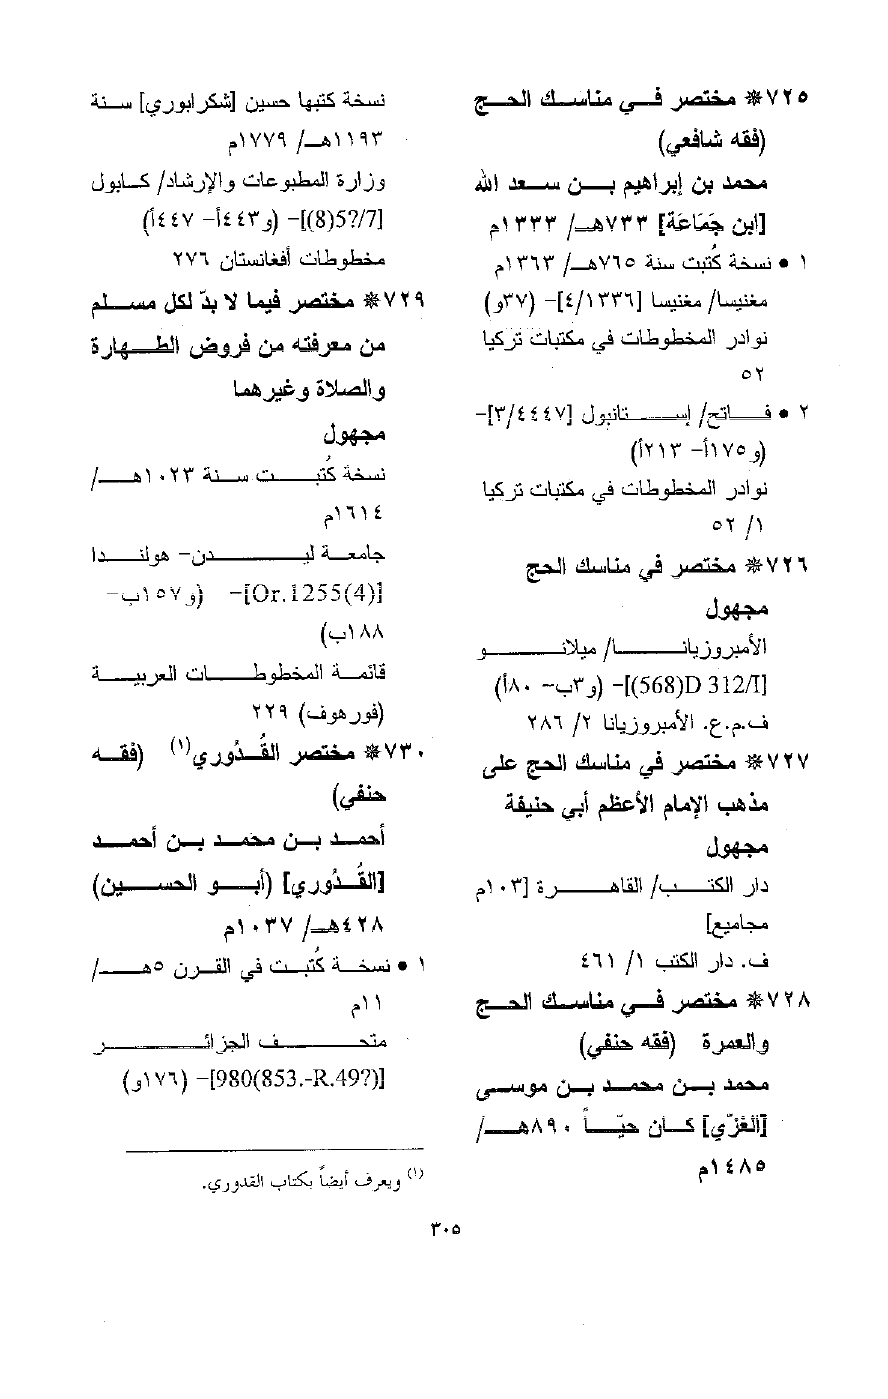 ٧٢٥* مختصر في مناسك الحج
(فقه شافعي)
محمد بن إبراهيم بن سعد الله
[ابن جَمَاعَة] ٧٣٣هـ/ ١٣٣٣م
١ • نسخة كُتبت سنة ٧٦٥هـ/ ١٣٦٣م
مغنيسا/ مغنيسا [٤/١٣٣٦]- (٣٧و)
نوادر المخطوطات في مكتبات تركيا
٥٢
٢ • فاتح/ إستانبول [٣/٤٤٤٧]-
(و١٧٥أ- ٢١٣أ)
نوادر المخطوطات في مكتبات تركيا
١/ ٥٢
٧٢٦* مختصر في مناسك الحج
مجهول
الأمبروزيانا/ ميلانو
[(568)D 312/I]- (و٣ب- ٨٠أ)
ف.م.ع. الأمبروزيانا ٢/ ٢٨٦
٧٢٧* مختصر في مناسك الحج على
مذهب الإمام الأعظم أبي حنيفة
مجهول
دار الكتب/ القاهرة [١٠٣م
مجاميع]
ف. دار الكتب ١/ ٤٦١
٧٢٨* مختصر في مناسك الحج
والعمرة (فقه حنفي)
محمد بن محمد بن موسى
[الغَزّي] كان حيّاً ٨٩٠هـ/
١٤٨٥م
نسخة كتبها حسين [شكرابوري] سنة
١١٩٣هـ/ ١٧٧٩م
وزارة المطبوعات والإرشاد/ كابول
[(8)5?/7]- (و٤٤٣أ- ٤٤٧أ)
مخطوطات أفغانستان ٢٧٦
٧٢٩* مختصر فيما لا بدّ لكل مسلم
من معرفته من فروض الطهارة
والصلاة وغيرهما
مجهول
نسخة كُتبت سنة ١٠٢٣هـ/
١٦١٤م
جامعة ليدن- هولندا
[Or.1255(4)]- (و١٥٧ب-
١٨٨ب)
قائمة المخطوطات العربية
(فورهوف) ٢٢٩
٧٣٠* مختصر القُدُوري(١) (فقه
حنفي)
أحمد بن محمد بن أحمد
[القُدُوري] (أبو الحسين)
٤٢٨هـ/ ١٠٣٧م
١ • نسخة كُتبت في القرن ٥هـ/
١١م
متحف الجزائر
[980(853.-R.49?)]- (١٧٦و)
(١) ويعرف أيضاً بكتاب القدوري.
٣٠٥